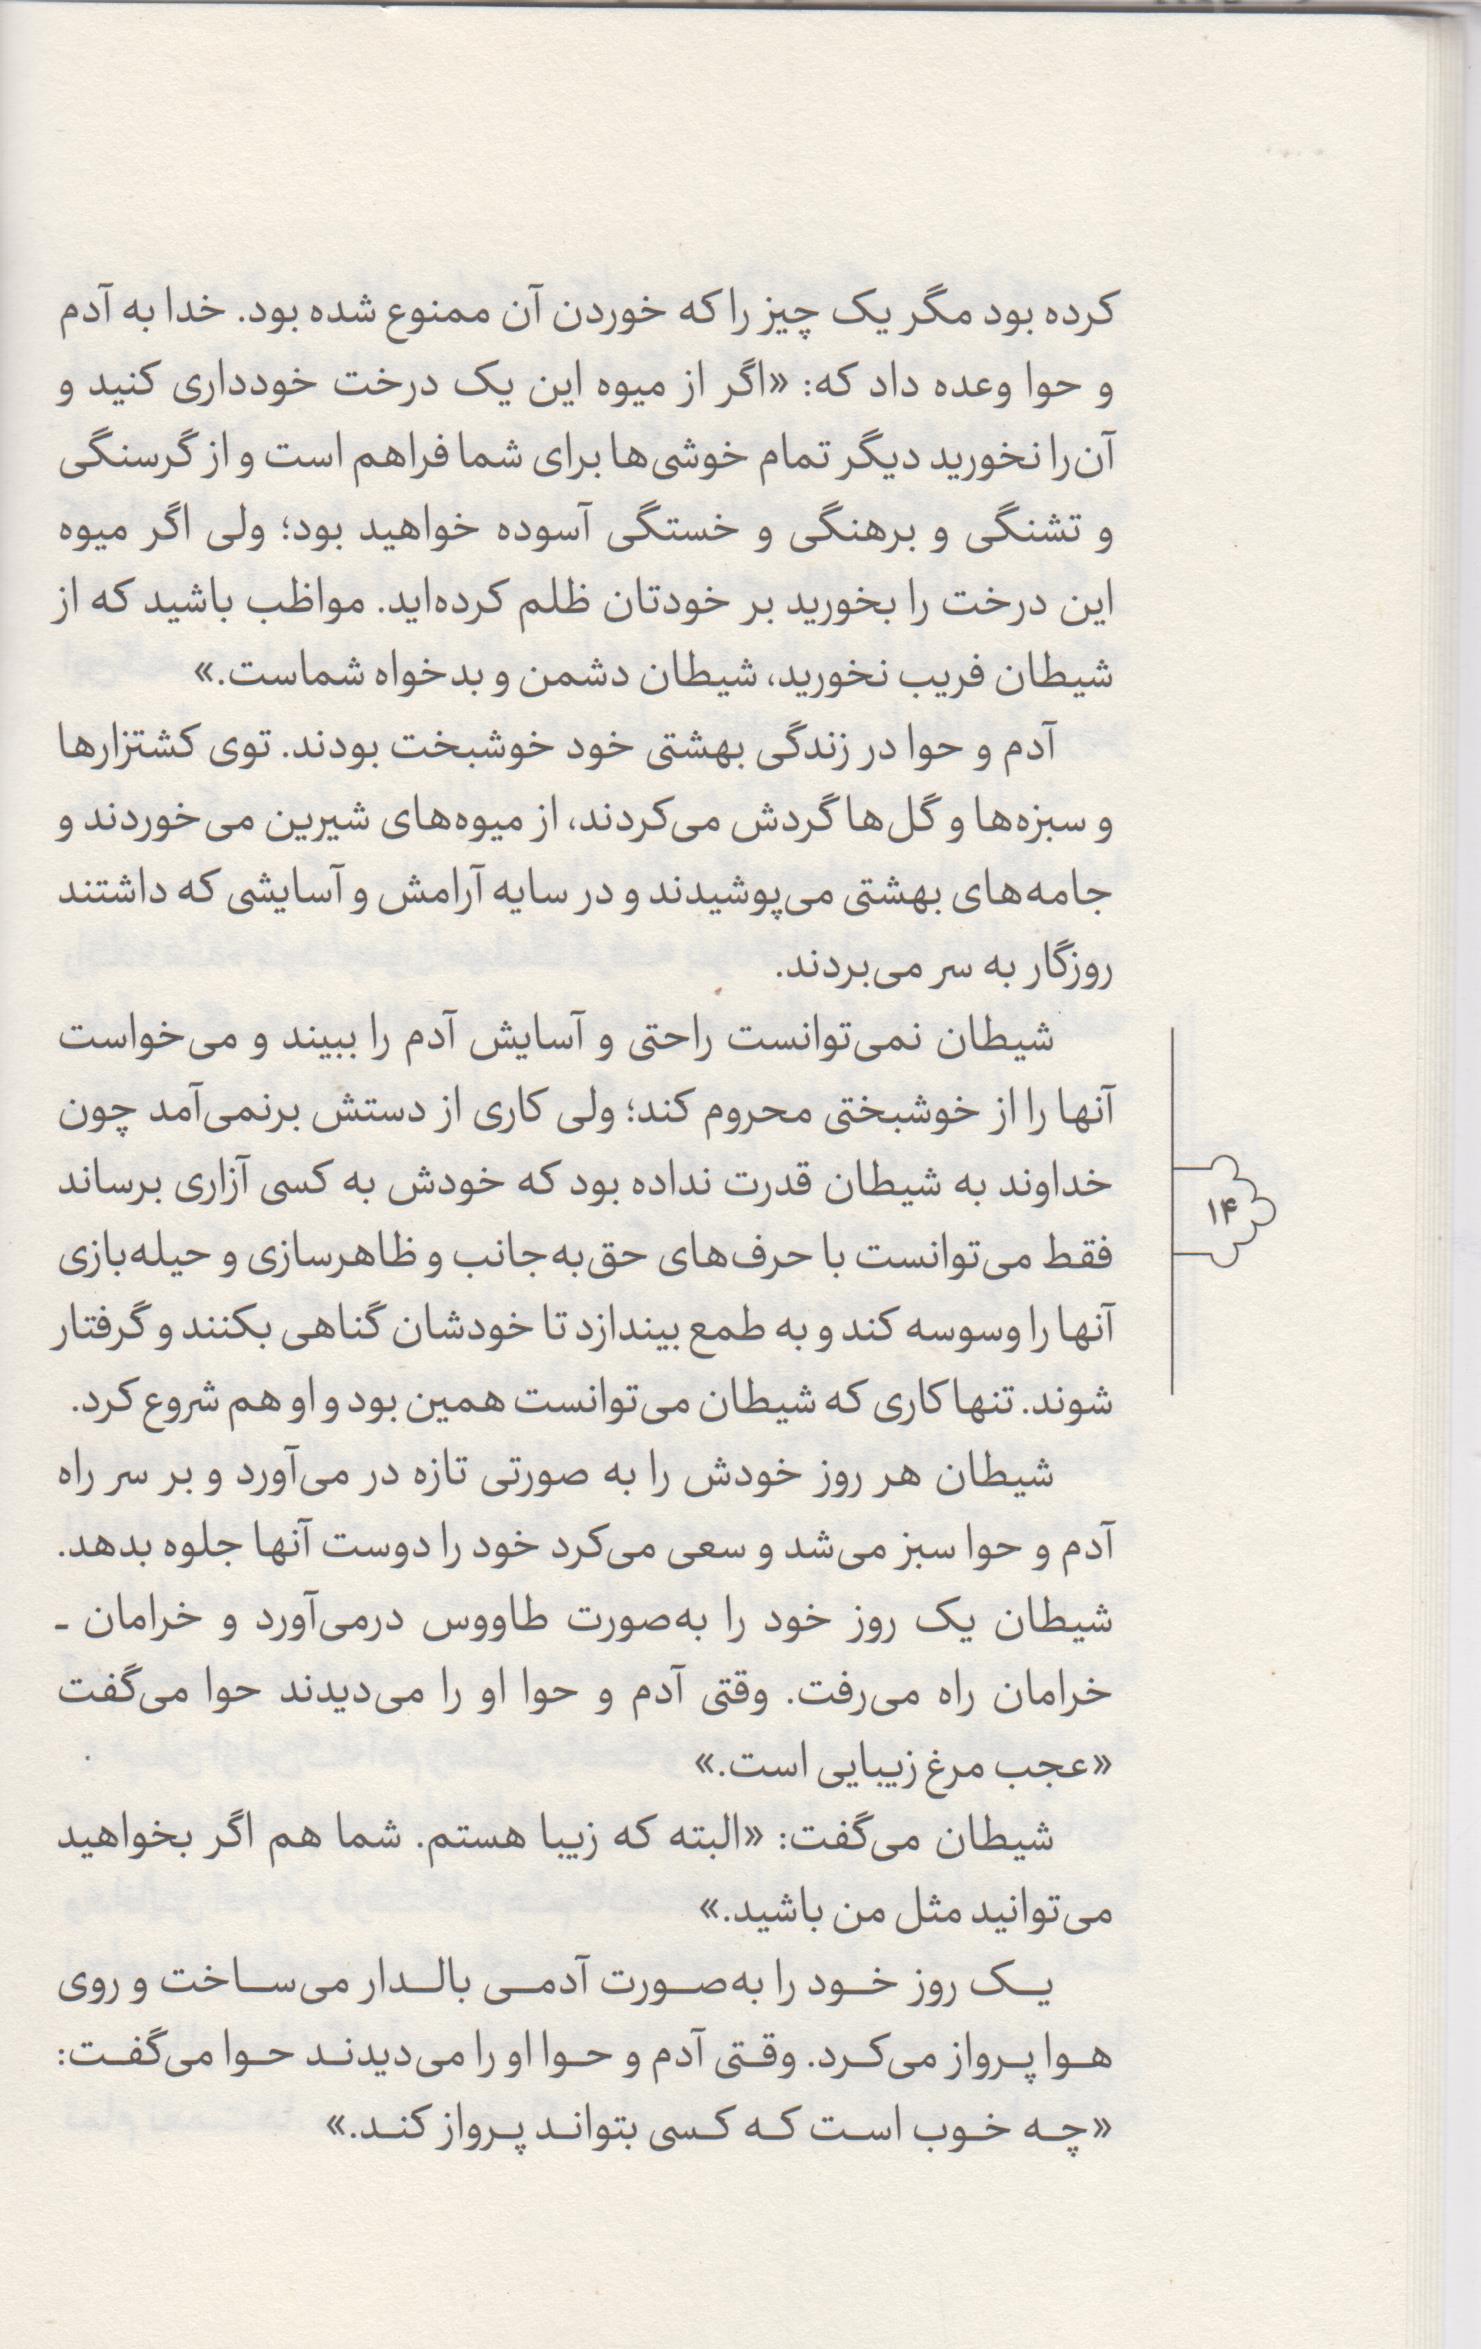 کرده بود مگر یک چیز را که خوردن آن ممنوع شده بود. خدا به آدم
و حوا وعده داد که: «اگر از میوه این یک درخت خودداری کنید و
آن‌را نخورید دیگر تمام خوشی‌ها برای شما فراهم است و از گرسنگی
و تشنگی و برهنگی و خستگی آسوده خواهید بود؛ ولی اگر میوه
این درخت را بخورید بر خودتان ظلم کرده‌اید. مواظب باشید که از
شیطان فریب نخورید، شیطان دشمن و بدخواه شماست.»
آدم و حوا در زندگی بهشتی خود خوشبخت بودند. توی کشتزارها
و سبزه‌ها و گل‌ها گردش می‌کردند، از میوه‌های شیرین می‌خوردند و
جامه‌های بهشتی می‌پوشیدند و در سایه آرامش و آسایشی که داشتند
روزگار به سر می‌بردند.
شیطان نمی‌توانست راحتی و آسایش آدم را ببیند و می‌خواست
آنها را از خوشبختی محروم کند؛ ولی کاری از دستش برنمی‌آمد چون
خداوند به شیطان قدرت نداده بود که خودش به کسی آزاری برساند
فقط می‌توانست با حرف‌های حق‌به‌جانب و ظاهرسازی و حیله‌بازی
آنها را وسوسه کند و به طمع بیندازد تا خودشان گناهی بکنند و گرفتار
شوند. تنها کاری که شیطان می‌توانست همین بود و او هم شروع کرد.
شیطان هر روز خودش را به صورتی تازه در می‌آورد و بر سر راه
آدم و حوا سبز می‌شد و سعی می‌کرد خود را دوست آنها جلوه بدهد.
شیطان یک روز خود را به‌صورت طاووس درمی‌آورد و خرامان ـ
خرامان راه می‌رفت. وقتی آدم و حوا او را می‌دیدند حوا می‌گفت
«عجب مرغ زیبایی است.»
شیطان می‌گفت: «البته که زیبا هستم. شما هم اگر بخواهید
می‌توانید مثل من باشید.»
یک روز خود را به‌صورت آدمی بالدار می‌ساخت و روی
هوا پرواز می‌کرد. وقتی آدم و حوا او را می‌دیدند حوا می‌گفت:
«چه خوب است که کسی بتواند پرواز کند.»
۱۴